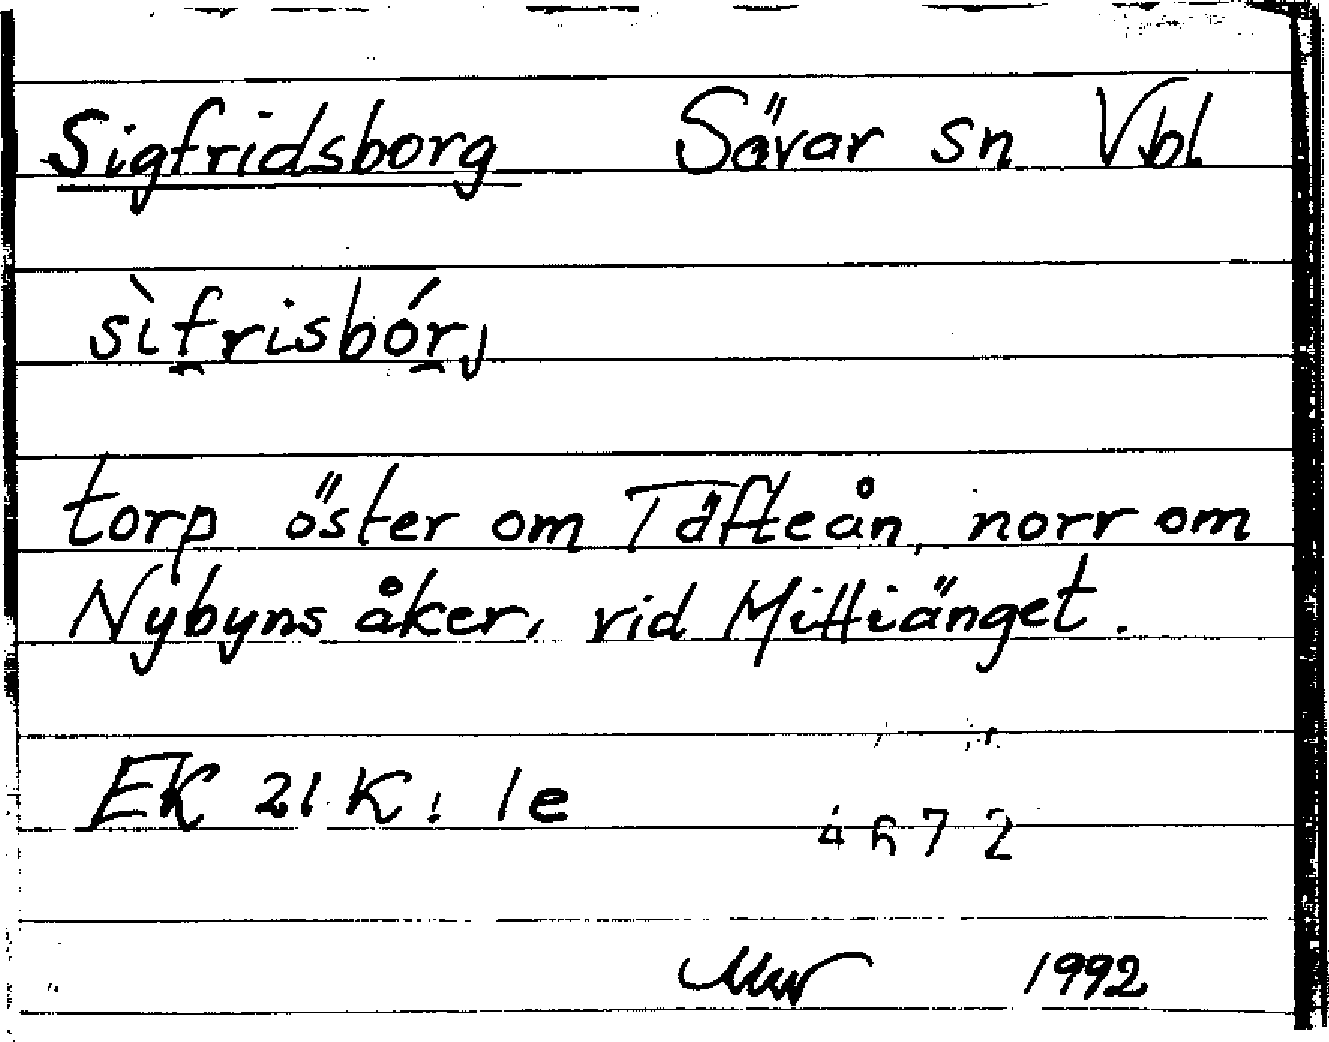 Sigfridsborg Sävar sn Vbl
sìfrisbórj
torp öster om Täfteån, norr om
Nybyns åker, vid Mittiänget.
EK 21 K: 1e
1992